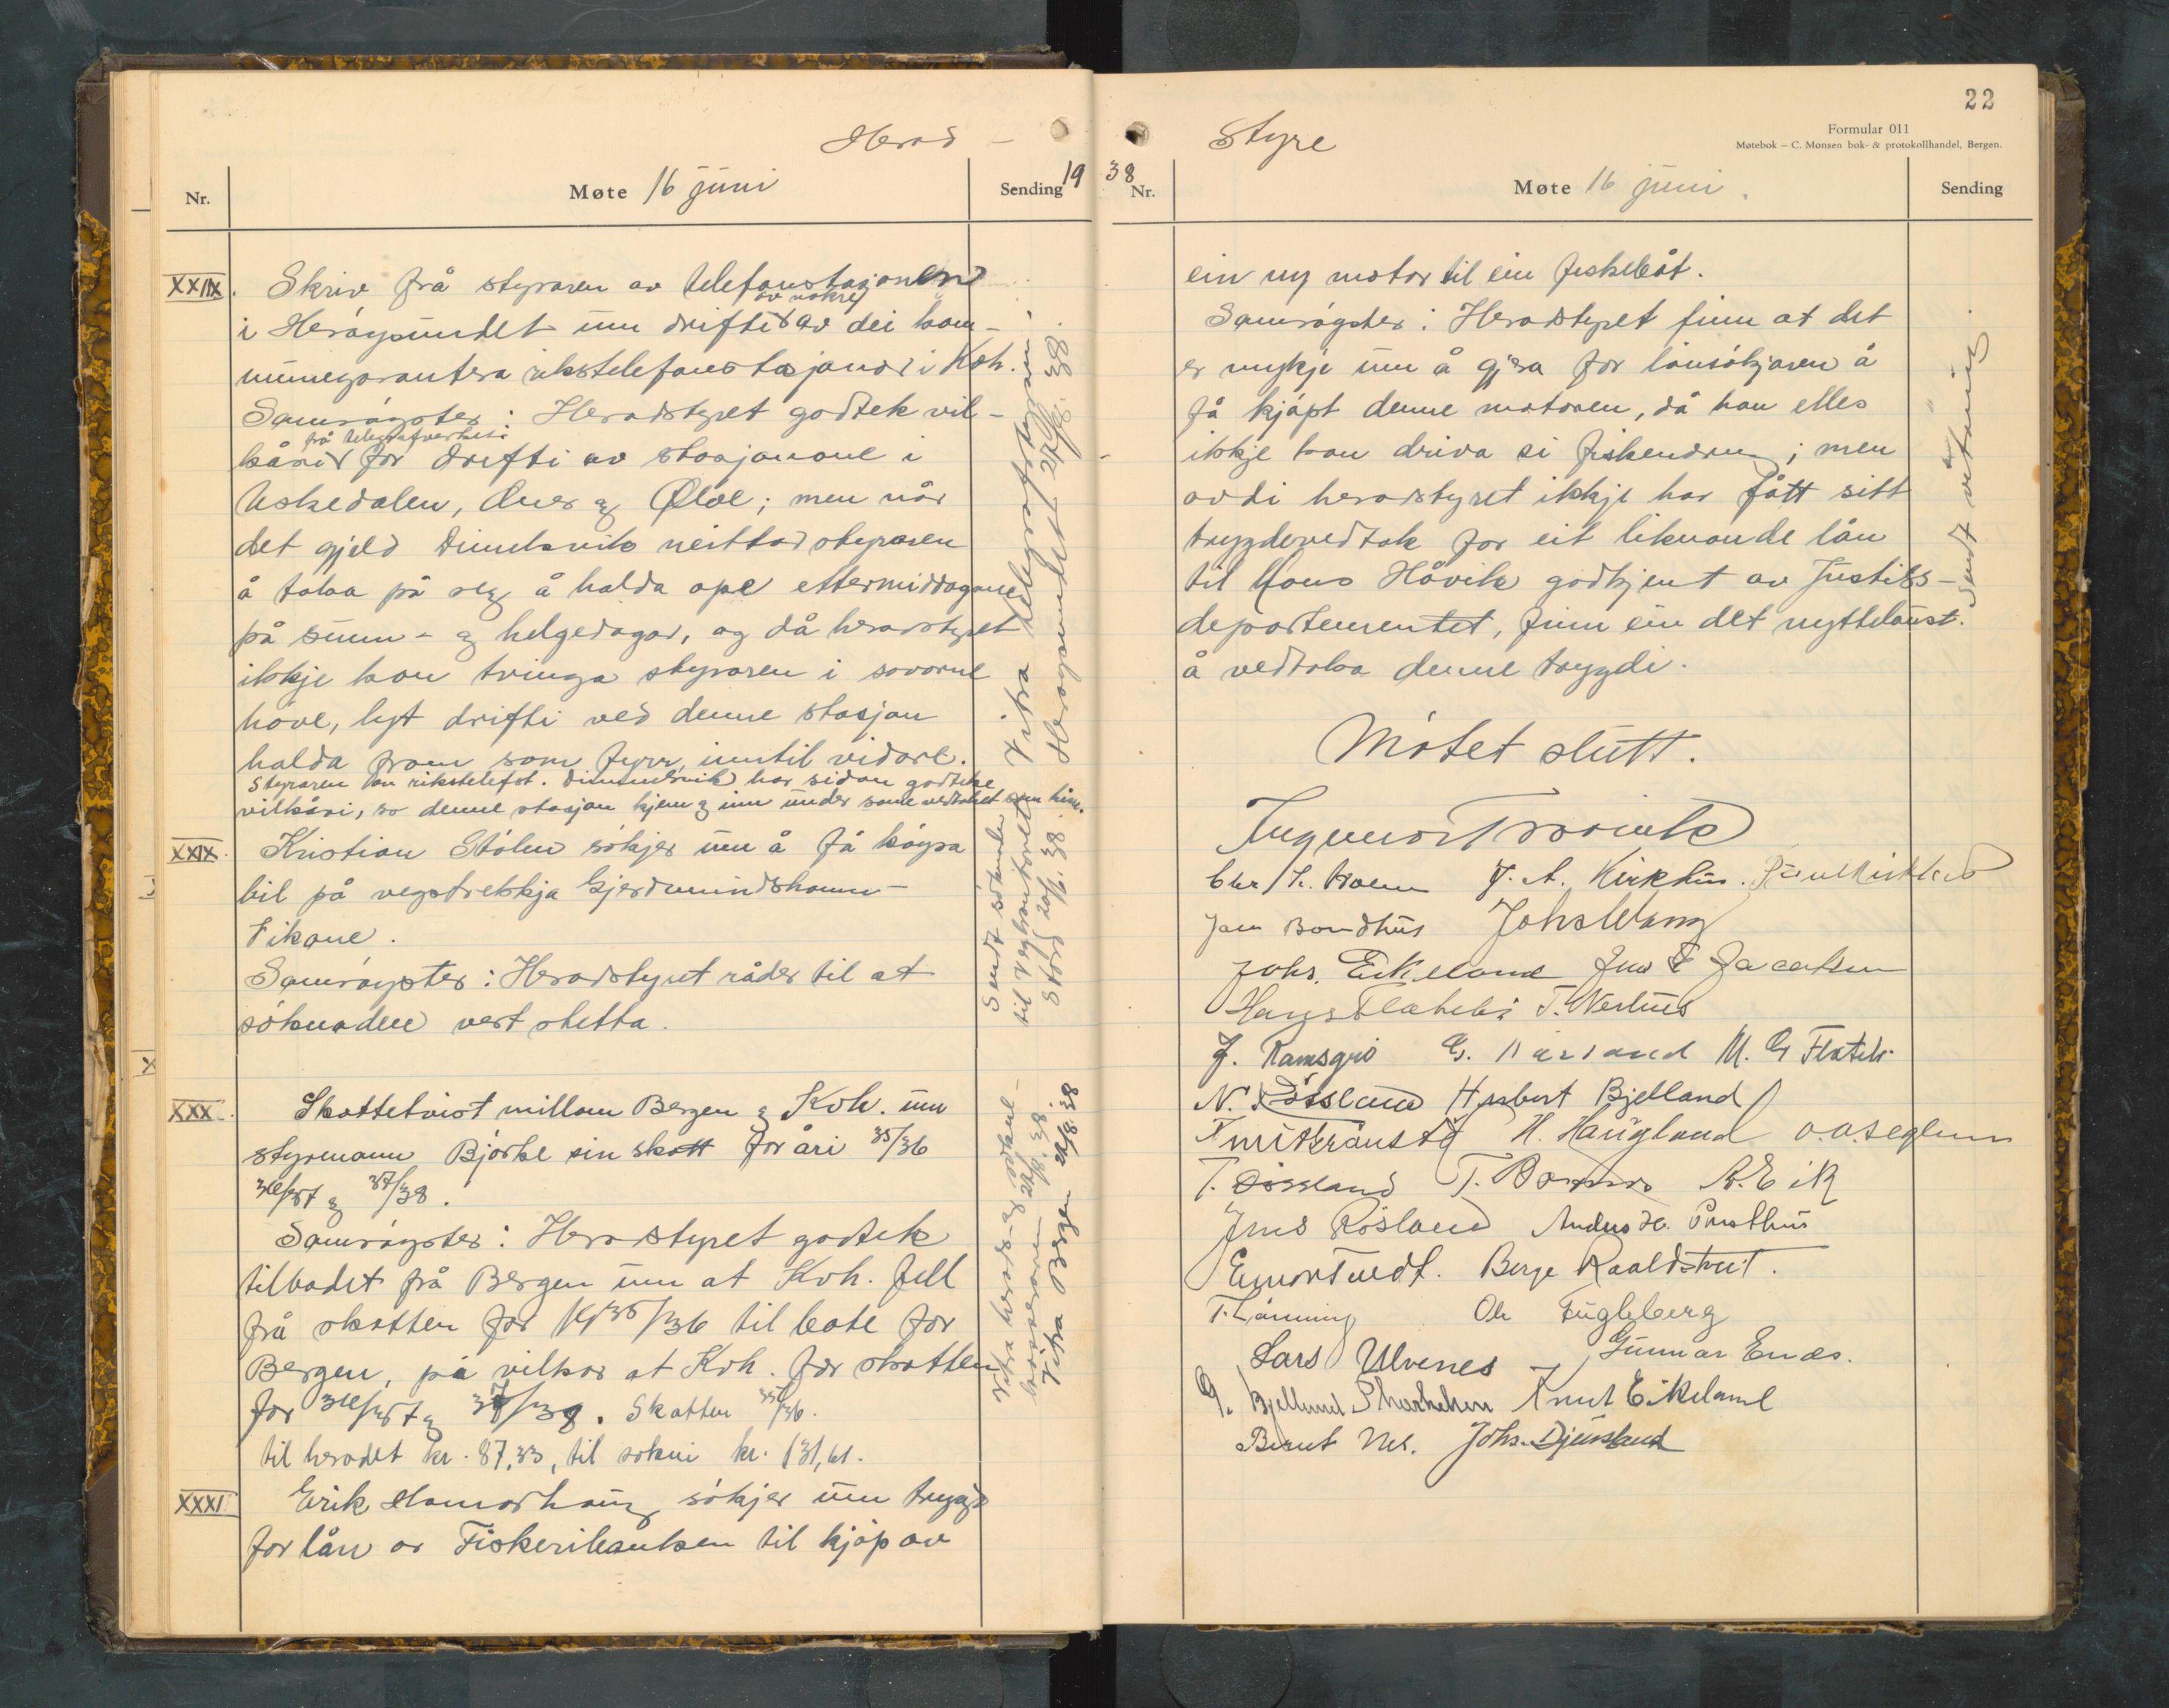 Herad -
Nr.
Møte 16 juni
Sending
19
XXIIX.
Skriv frå styraren av telefonstasjonen
i Herøysundet um drifti av nokre av dei kom-
munegarantera rikstelefonstasjonar i Kvh.
Samrøystes: Heradstyret godtek vil-
kåri frå telegrafverket for drifti av stasjonane i
Uskedalen, Ænes og Ølve; men når
det gjeld Dimelsvik neittar styraren
å taka på seg å halda ope ettermiddagane
på sunn- og helgedagar, og då heradstyret
ikkje kan tvinga styraren i sovorne
høve, lyt drifti ved denne stasjon
halda fram som fyrr, inntil vidare.
Styraren av rikstelefst. Dimmelsvik har sidan godteke
vilkåri, so denne stasjon kjem og inn under same vedtaket som hine.
Vitra telegrafstyrar i
Herøysundet 27/6. 38.
XXIX.
Kristian Stølen søkjer um å få køyra
bil på vegstrekkja Gjerdmundshamn -
Fikane.
Samrøystes: Heradstyret råder til at
søknaden vert stetta.
Sendt søknaden
til vegkontoret
Stord 20/6. 38.
XXX.
Skattetvist millom Bergen og Kvh. um
styrmann Bjørke sin skatt for åri 35/36
36/37 og 37/38.
Samrøystes: Heradstyret godtek
tilbodet frå Bergen um at Kvh. fell
frå skatten for 1935/36 til bate for
Bergen, på vilkor at Kvh. fær skatten
for 36/37 og 37/38. Skatten 35/36.
til heradet kr. 87,33, til sokni kr. 131,61.
Vitra herads- og sokne-
kasseraren 22/8. 38.
Vitra Bergen 22/8. 38
XXXI
Erik Hamarhaug søkjer um trygd
for lån av Fiskeribanken til kjøp av
22
Formular 011
Møtebok – C. Monsen bok- & protokollhandel, Bergen.
Styre
38
Nr.
Møte 16 juni.
Sending
ein ny motor til ein fiskebåt.
Samrøystes: Heradstyret finn at det
er mykje um å gjera for lånsøkjaren å
få kjøpt denne motoren, då han elles
ikkje kan driva si fiskendring; men
avdi heradstyret ikkje har fått sitt
trygdevedtak for eit liknande lån
til Mons Håvik godkjent av Justis-
departementet, finn ein det nyttelaust.
å vedtaka denne trygdi.
Sendt utskrift
Møtet slutt.
Ingvar Tvavik
J. A. Kirkhus.
Jan Bondhus Johs Wang
Johs. Eikeland Jens E Jacobsen
Hans Flatebø T. Nerhus
J. Ramsgrø G. M. G Flatebø
N. Døssland Herbert Bjelland
H. Haugland O. A. Seglem
T. Døssland A. Eik
Jens Røsland Anders H. Presthus
Einar Tvedt. Berge Raaldstveit.
T. Lønning Ole Fugleberg
Lars Ulvenes Gunnar Enes.
G. Bjelland Knut Eikeland
Bernt Nes. Johs. Djuvsland